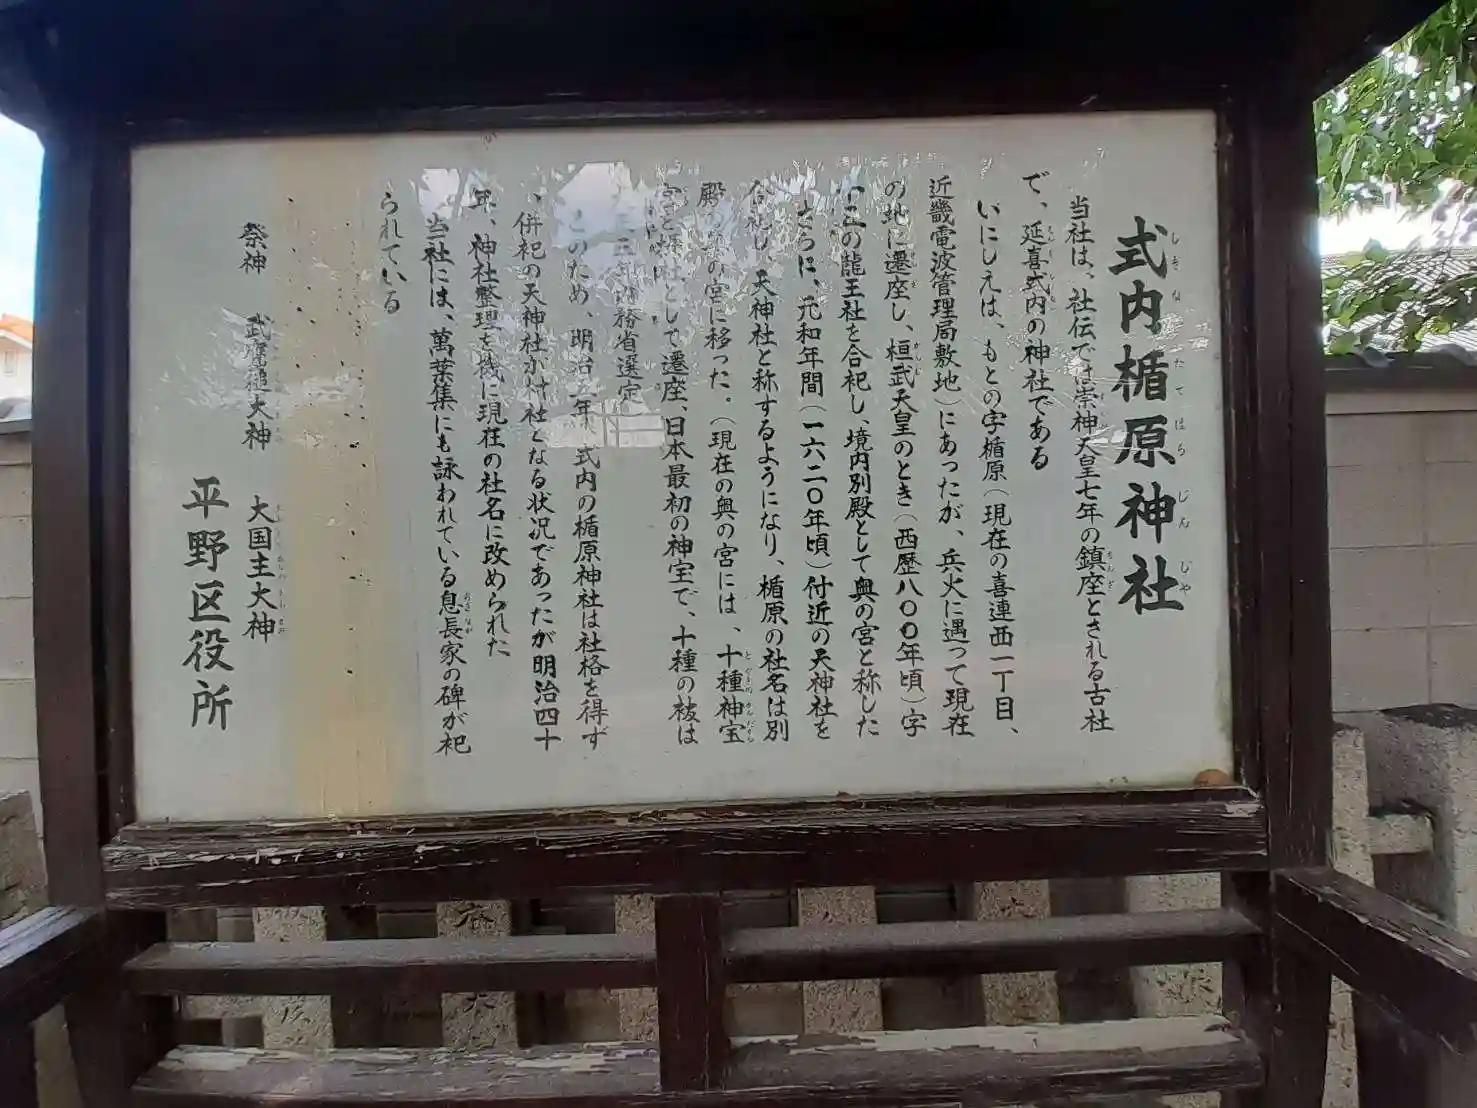 式内楯原神社
しきないたてはらじんじゃ
当社は、社伝では崇神天皇七年の鎮座とされる古社
で、延喜式内の神社である
いにしえは、もとの字楯原(現在の喜連西一丁目、
近畿電波管理局敷地)にあったが、兵火に遇って現在
の地に遷座し、桓武天皇のとき(西歴八〇〇年頃)字
の龍王社を合祀し、境内別殿として奥の宮と称した
さらに、元和年間(一六二〇年頃)付近の天神社を
合祀し、天神社と称するようになり、楯原の社名は別
殿の奥の宮に移った。(現在の奥の宮には、十種神宝
宮を摂社として遷座、日本最初の神宝で、十種の祓は
務省選定
このため、明治 年 式内の楯原神社は社格を得ず
、併祀の天神社が村社となる状況であったが明治四十
年、神社整理を機に現在の社名に改められた
当社には、萬葉集にも詠われている息長家の碑が祀
られている
祭神 武甕槌大神 大国主大神
平野区役所